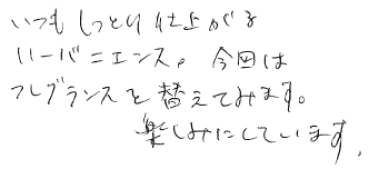 いつもしっとり仕上がる
ハーバニエンス。今回は
フレグランスを替えてみます。
楽しみにしています。